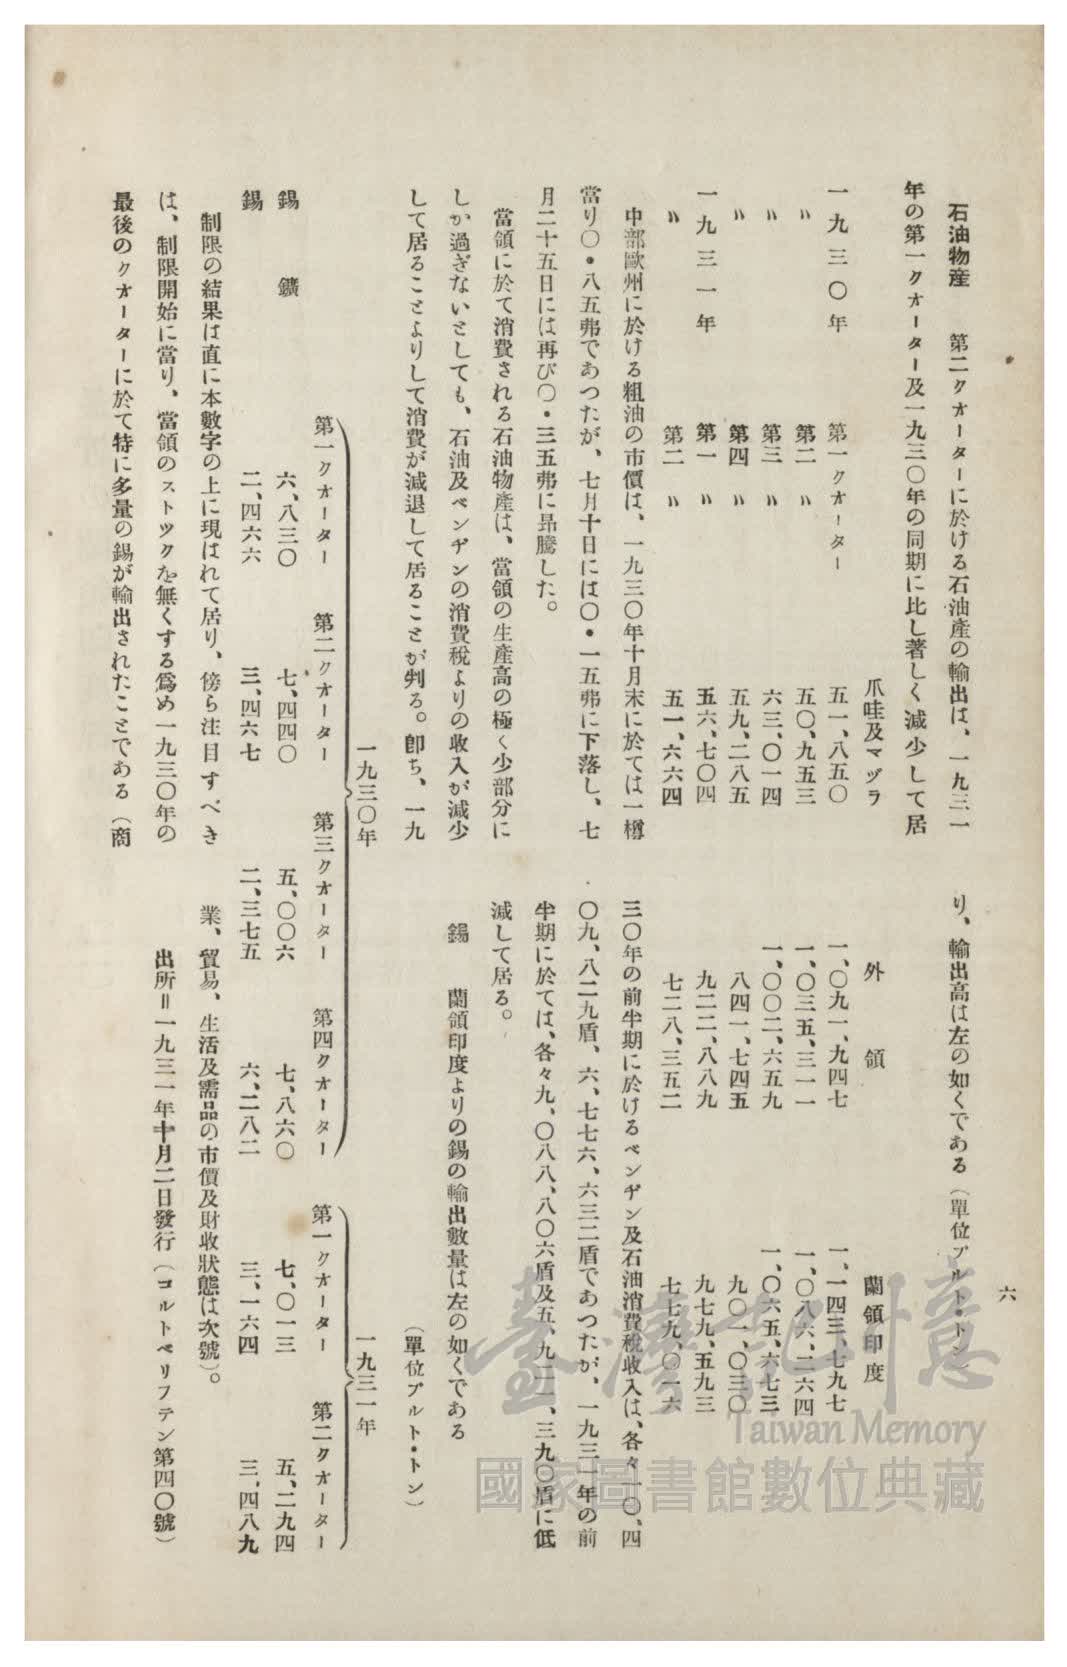 六
石油物產　第二クオーターに於ける石油產の輸出は、一九三一
年の第一クオーター及一九三〇年の同期に比し著しく減少して居
り、輸出高は左の如くである（單位ブルト・トン）
爪哇及マヅラ　外領　蘭領印度
一九三〇年　第一クオーター　五一、八五〇　一、〇九一、九四七　一、一四三、七九七
〃　第二　〃　五〇、九五三　一、〇三五、三一一　一、〇八六、二六四
〃　第三　〃　六三、〇一四　一、〇〇二、六五九　一、〇六五、六七三
〃　第四　〃　五九、二八五　八四一、七四五　九〇一、〇三〇
一九三一年　第一　〃　五六、七〇四　九二二、八八九　九七九、五九三
〃　第二　〃　五一、六六四　七二八、三五二　七七九、〇一六
中部歐州に於ける粗油の市價は、一九三〇年十月末に於ては一樽
當り〇・八五弗であつたが、七月十日には〇・一五弗に下落し、七
月二十五日には再び〇・三五弗に昂騰した。
當領に於て消費される石油物產は、當領の生產高の極く少部分に
しか過ぎないとしても、石油及ベンヂンの消費稅よりの收入が減少
して居ることよりして消費が減退して居ることが判る。卽ち、一九
三〇年の前半期に於けるベンヂン及石油消費稅收入は、各々一〇、四
〇九、八二九盾、六、七七六、六三二盾であつたが、一九三一年の前
半期に於ては、各々九、〇八八、八〇六盾及五、九二一、三九〇盾に低
減して居る。
錫　蘭領印度よりの錫の輸出數量は左の如くである
（單位ブルト・トン）
一九三〇年　一九三一年
第一クオーター　第二クオーター　第三クオーター　第四クオーター　第一クオーター　第二クオーター
錫鑛　六、八三〇　七、四四〇　五、〇〇六　七、八六〇　七、〇一三　五、二九四
錫　二、四六六　三、四六七　二、三七五　六、二八二　三、一六四　三、四八九
制限の結果は直に本數字の上に現はれて居り、傍ら注目すべき
は、制限開始に當り、當領のストツクを無くする爲め一九三〇年の
最後のクオーターに於て特に多量の錫が輸出されたことである（商
業、貿易、生活及需品の市價及財收狀態は次號）。
出所＝一九三一年十月二日發行（コルトベリフテン第四〇號）
臺灣記憶
Taiwan Memory
國家圖書館數位典藏